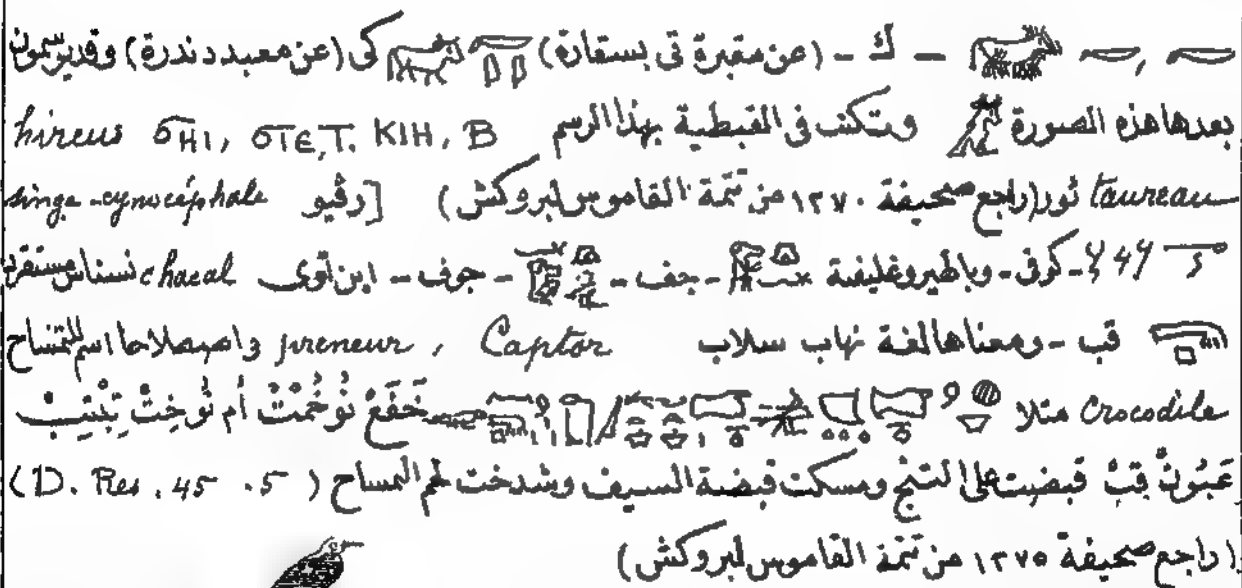 ك - (عن مقبرة تى بسقارة) كى (عن معبد دندرة) وقد يرسمون
بعدها هذه الصورة وتكتب فى القبطية بهذا الرسم hircus ϭΗΙ, ϭΙΕ, T. ΚΙΗ, B
taureau ثور (راجع صحيفة ١٢٧٠ من تتمة القاموس لبروكش) [رقيو singe-cynocéphale
كوفى - وبالهيروغليفية - جف - جوف - ابن آوى chacal نسناس
قب - ومعناها لغة نهاب سلاب preneur, Captor واصطلاحا اسم للتمساح
Crocodile مثلا خَفَعْ نُوخُمْتْ أم نُوخِتْ
قِبْ قبضت على ومسكت قبضة السيف وشدخت لحم التمساح (D. Res. 45. 5)
(راجع صحيفة ١٢٧٥ من تتمة القاموس لبروكش)